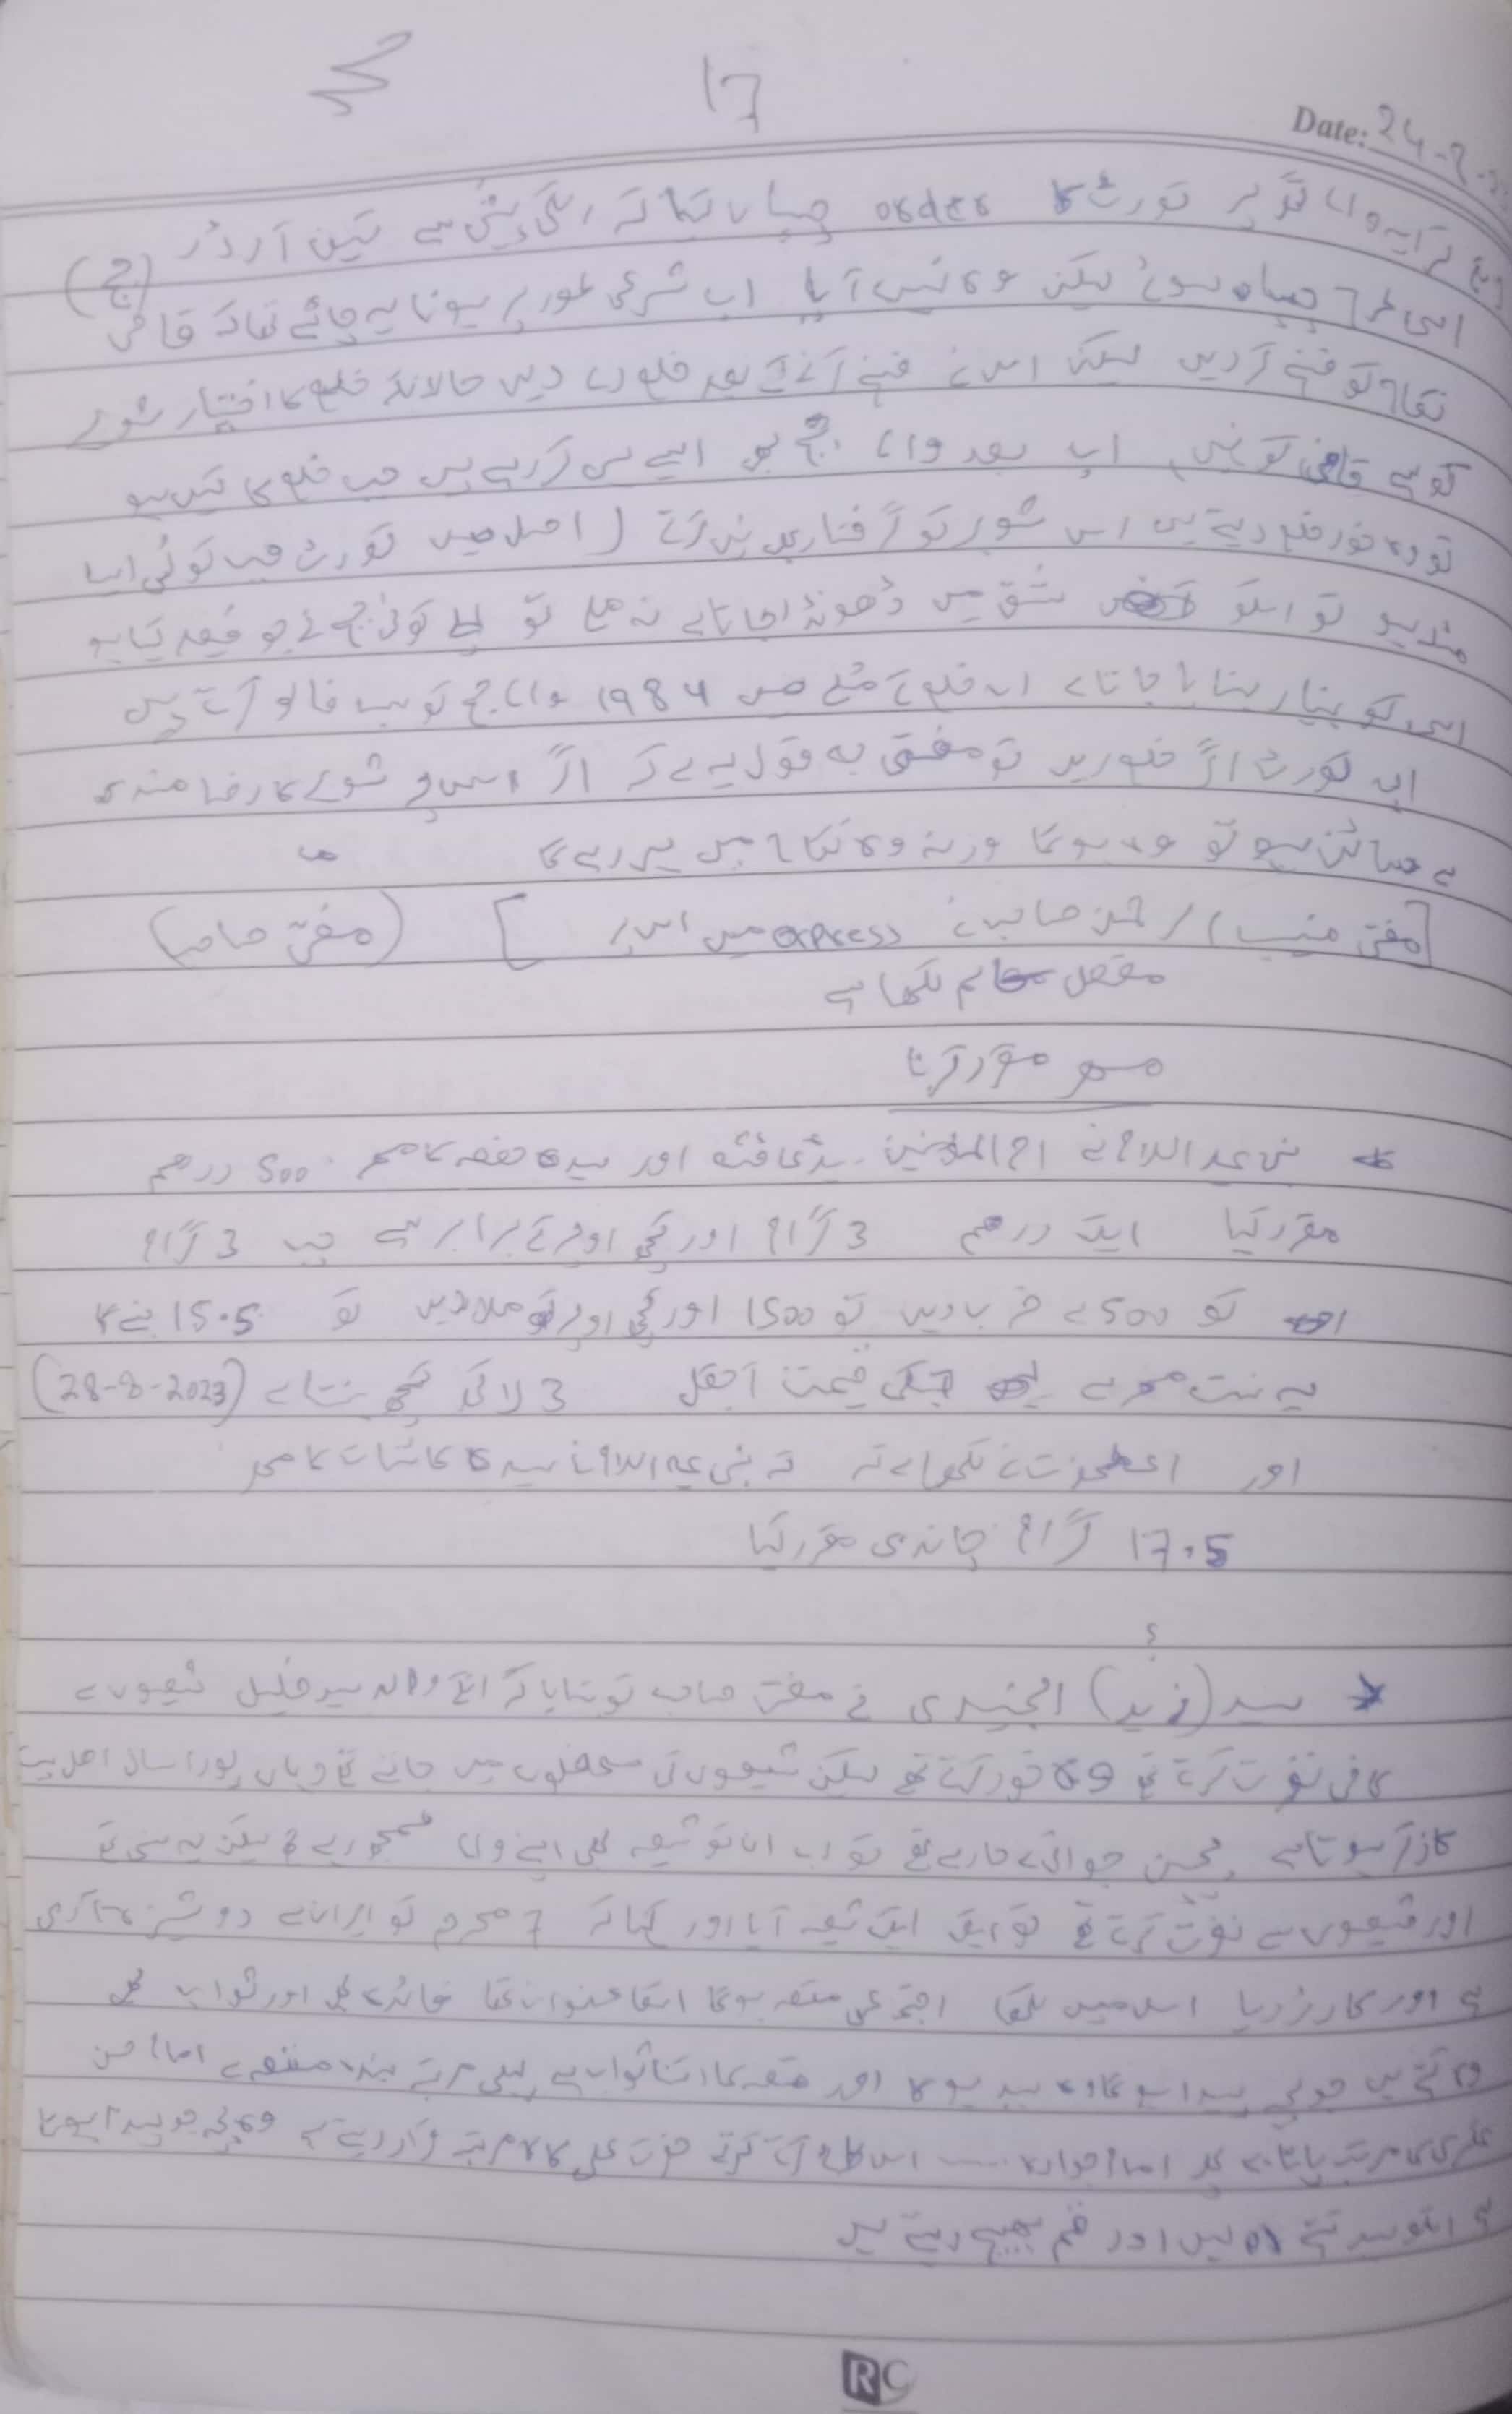 17
Date: 24-
پر کورٹ کا order چسپاں کیا کہ اسکی پیشی ہے تین آرڈر (ج)
اسی طرح چسپاں ہوئے لیکن وہ نہیں آیا اب شرعی طور پر ہونا یہ چاہئے تھا کہ قاضی
نکاح کو فسخ کر دیں لیکن اس نے فسخ کرنے کے بعد خلع دے دیں حالانکہ خلع کا اختیار شوہر
کو ہے قاضی کو نہیں، اب بعد والے جج بھی ایسے ہی کر رہے ہیں جب خلع کا کیس ہو
تو وہ خود خلع دیتے ہیں اس شوہر کو گرفتار بھی نہیں کرتے (اصل میں کورٹ میں کوئی ایسا
مسئلہ ہو تو اسکو شق میں ڈھونڈا جاتا ہے نہ ملے تو کوئی جج نے جو فیصلہ کیا ہو
اسی کو بنیاد بنایا جاتا ہے اب خلع کے مسئلے میں 1984 والے جج کو سب فالو کرتے ہیں
اب کورٹ اگر خلع دیں تو مفتی بہ قول یہ ہے کہ اگر اس میں شوہر کی رضامندی
سے سائن ہو تو وہ ہوگا ورنہ وہ نکاح میں ہی رہے گا
[مفتی منیب الرحمن صاحب نے express میں اس پر] (مفتی صاحب)
مفصل کالم لکھا ہے
مہر مقرر کرنا
* نبی علیہ السلام نے ام المؤمنین سیدہ عائشہ اور سیدہ حفصہ کا مہر 500 درھم
مقرر کیا ایک درھم 3 گرام اور کچھ اوپر کے برابر ہے جب 3 گرام
کو 500 سے ضرب دیں تو 1500 اور کچھ اوپر کو ملا دیں تو 15.5 بنے گا
یہ سنت مہر ہے جسکی قیمت آجکل 3 لاکھ کچھ بنتا ہے (28-8-2023)
اور اعلحضرت نے لکھوا ہے کہ نبی علیہ السلام نے سیدہ کائنات کا مہر
17.5 گرام چاندی مقرر کیا
؟
* سید (زید) الجنیدی نے مفتی صاحب کو بتایا کہ انکے والد سید خلیل شیعوں سے
کافی نفرت کرتے تھے وہ خود کرتے تھے لیکن شیعوں کی محفلوں میں جاتے تھے وہاں پورا سال اھلبیت
کا ذکر ہوتا ہے تو اب ان کو شیعہ بھی اپنے والا سمجھ رہے تھے لیکن یہ سنی تھے
اور شیعوں سے نفرت کرتے تھے تو ایک شیعہ آیا اور کہا کہ 7 محرم کو ایران سے دوشیزہ آ رہی
ہے اور کارڈ دیا اس میں لکھا اجتماعی متعہ ہوگا اسکا عنوان تھا فائدے بھی اور ثواب بھی
وہ کہتے ہیں جو بچہ پیدا ہوگا وہ سید ہوگا اور متعہ کا اتنا ثواب ہے پہلی مرتبہ بندہ متعہ سے امام حسن
عسکری کا مرتبہ پاتا ہے پھر امام جواد کا ..... اس طرح کرتے کرتے حضرت علی کا مرتبہ قرار دیتے ہے وہ بچے جو پیدا ہوگا
ہے اسکو سید کہتے ہیں اور خمس بھی دیتے ہیں
RC